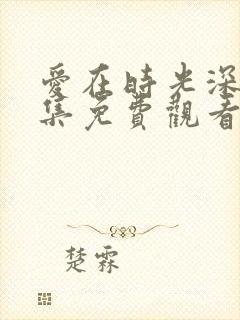 愛在時光深
集免費觀看
楚霖